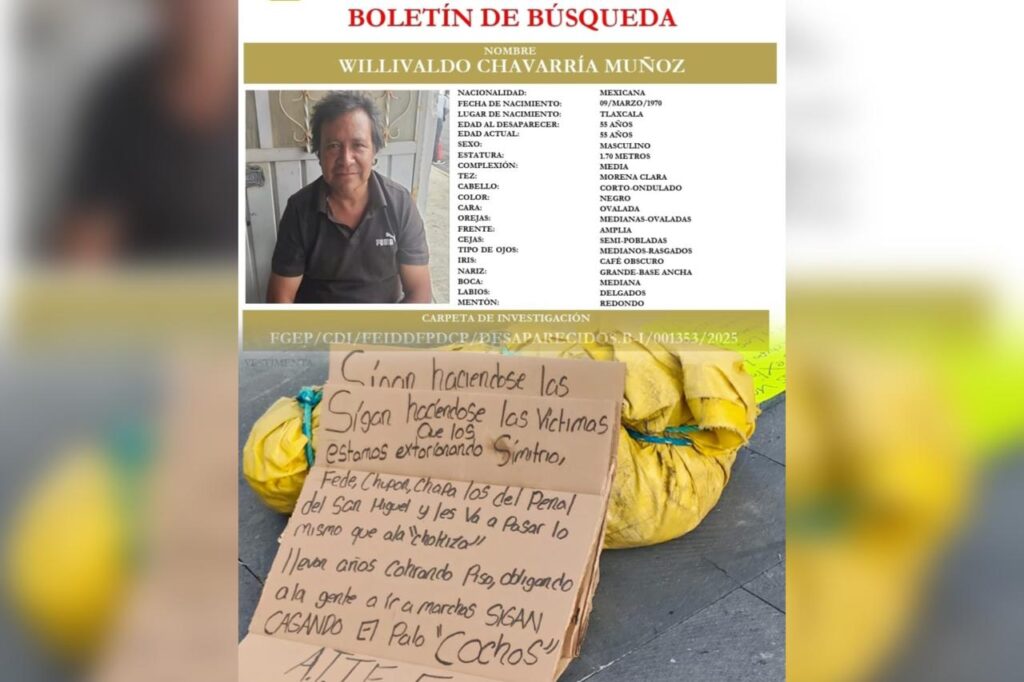 BOLETÍN DE BÚSQUEDA
NOMBRE
WILLIVALDO CHAVARRÍA MUÑOZ
NACIONALIDAD: MEXICANA
FECHA DE NACIMIENTO: 09/MARZO/1970
LUGAR DE NACIMIENTO: TLAXCALA
EDAD AL DESAPARECER: 55 AÑOS
EDAD ACTUAL: 55 AÑOS
SEXO: MASCULINO
ESTATURA: 1.70 METROS
COMPLEXIÓN: MEDIA
TEZ: MORENA CLARA
CABELLO: CORTO-ONDULADO
COLOR: NEGRO
CARA: OVALADA
OREJAS: MEDIANAS-OVALADAS
FRENTE: AMPLIA
CEJAS: SEMI-POBLADAS
TIPO DE OJOS: MEDIANOS-RASGADOS
IRIS: CAFÉ OBSCURO
NARIZ: GRANDE-BASE ANCHA
BOCA: MEDIANA
LABIOS: DELGADOS
MENTÓN: REDONDO
PUMA
CARPETA DE INVESTIGACIÓN
FGEP/CDI/FEIDDFPDCP/DESAPARECIDOS.B-I/001353/2025
VESTIMENTA
Sigan haciendose las
Sigan haciendose las Victimas
Que los
estamos extorcionando Simitrio,
Fede, Chupon, Chapa los del Penal
del San Miguel y les Va a Pasar lo
mismo que ala "choriza"
llevan años Cobrando Piso, obligando
a la gente a ir a marchas SIGAN
CAGANDO El Palo "Cochos"